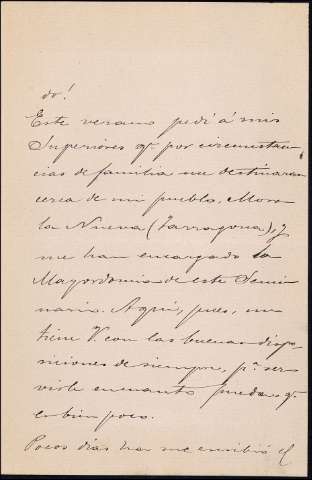 do!
Este verano pedí á mis
Superiores q. por circunstan-
cias de familia me destinaran
cerca de mi pueblo, Mora
la Nueva (Tarragona), y
me han encargado la
Mayordomia de este Semi-
nario. Aquí, pues, me
tiene V. con las buenas dispo-
siciones de siempre, pª ser-
virle en cuanto pueda q.
es bien poco.
Pocos días ha me escribió el